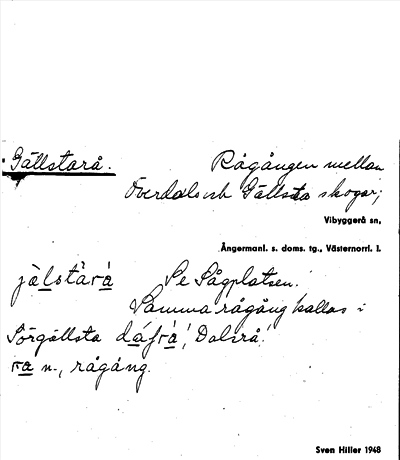 Gällstarå. Rågången mellan
Överdals och Gällsta skogar;
Vibyggerå sn,
Ångermanl. s. doms. tg., Västernorrl. l.
jä̀lstàrá Se Sågplatsen!
Samma rågång kallas i
Sörgällsta dáʃrá! Dalsrå!
ra n., rågång.
Sven Hiller 1948